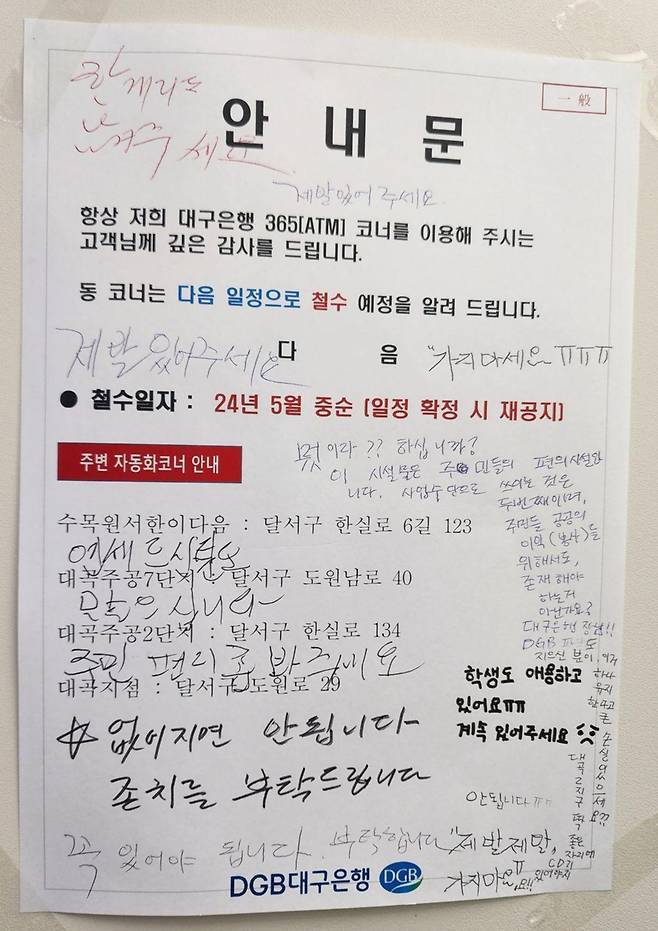 一般
한 개라도
남겨주세요
안 내 문
제발 있어 주세요.
항상 저희 대구은행 365[ATM] 코너를 이용해 주시는
고객님께 깊은 감사를 드립니다.
동 코너는 다음 일정으로 철수 예정을 알려 드립니다.
제발 있어주세요
다 음
"가지마세요 ㅠㅠㅠ
● 철수일자 : 24년 5월 중순 (일정 확정 시 재공지)
주변 자동화코너 안내
뭣이라?? 하십니까?
이 시설물은 주민들의 편의시설입
니다. 사업수단으로 쓰이는 것은
두번째이며,
주민들 공공의
이익(봉사)를
위해서도,
존재해야
하는거
아닌가요?
대구은행 장님!!
DGB
지으신 분이,
수목원서한이다음 : 달서구 한실로 6길 123
대곡주공7단지 : 달서구 도원남로 40
모하으십니다
대곡주공2단지 : 달서구 한실로 134
주민 편리를 봐주세요
대곡지점 : 달서구 도원로 29
학생도 애용하고
있어요ㅠㅠ
계속 있어주세요
☆ 없어지면 안됩니다
존치를 부탁드립니다
안됩니다ㅠㅠ
꼭 있어야 됩니다. 부탁합니다
"제발제발,
가지마요
대곡2지구
좋은
자리에
CD기
있어야지
DGB대구은행 DGB